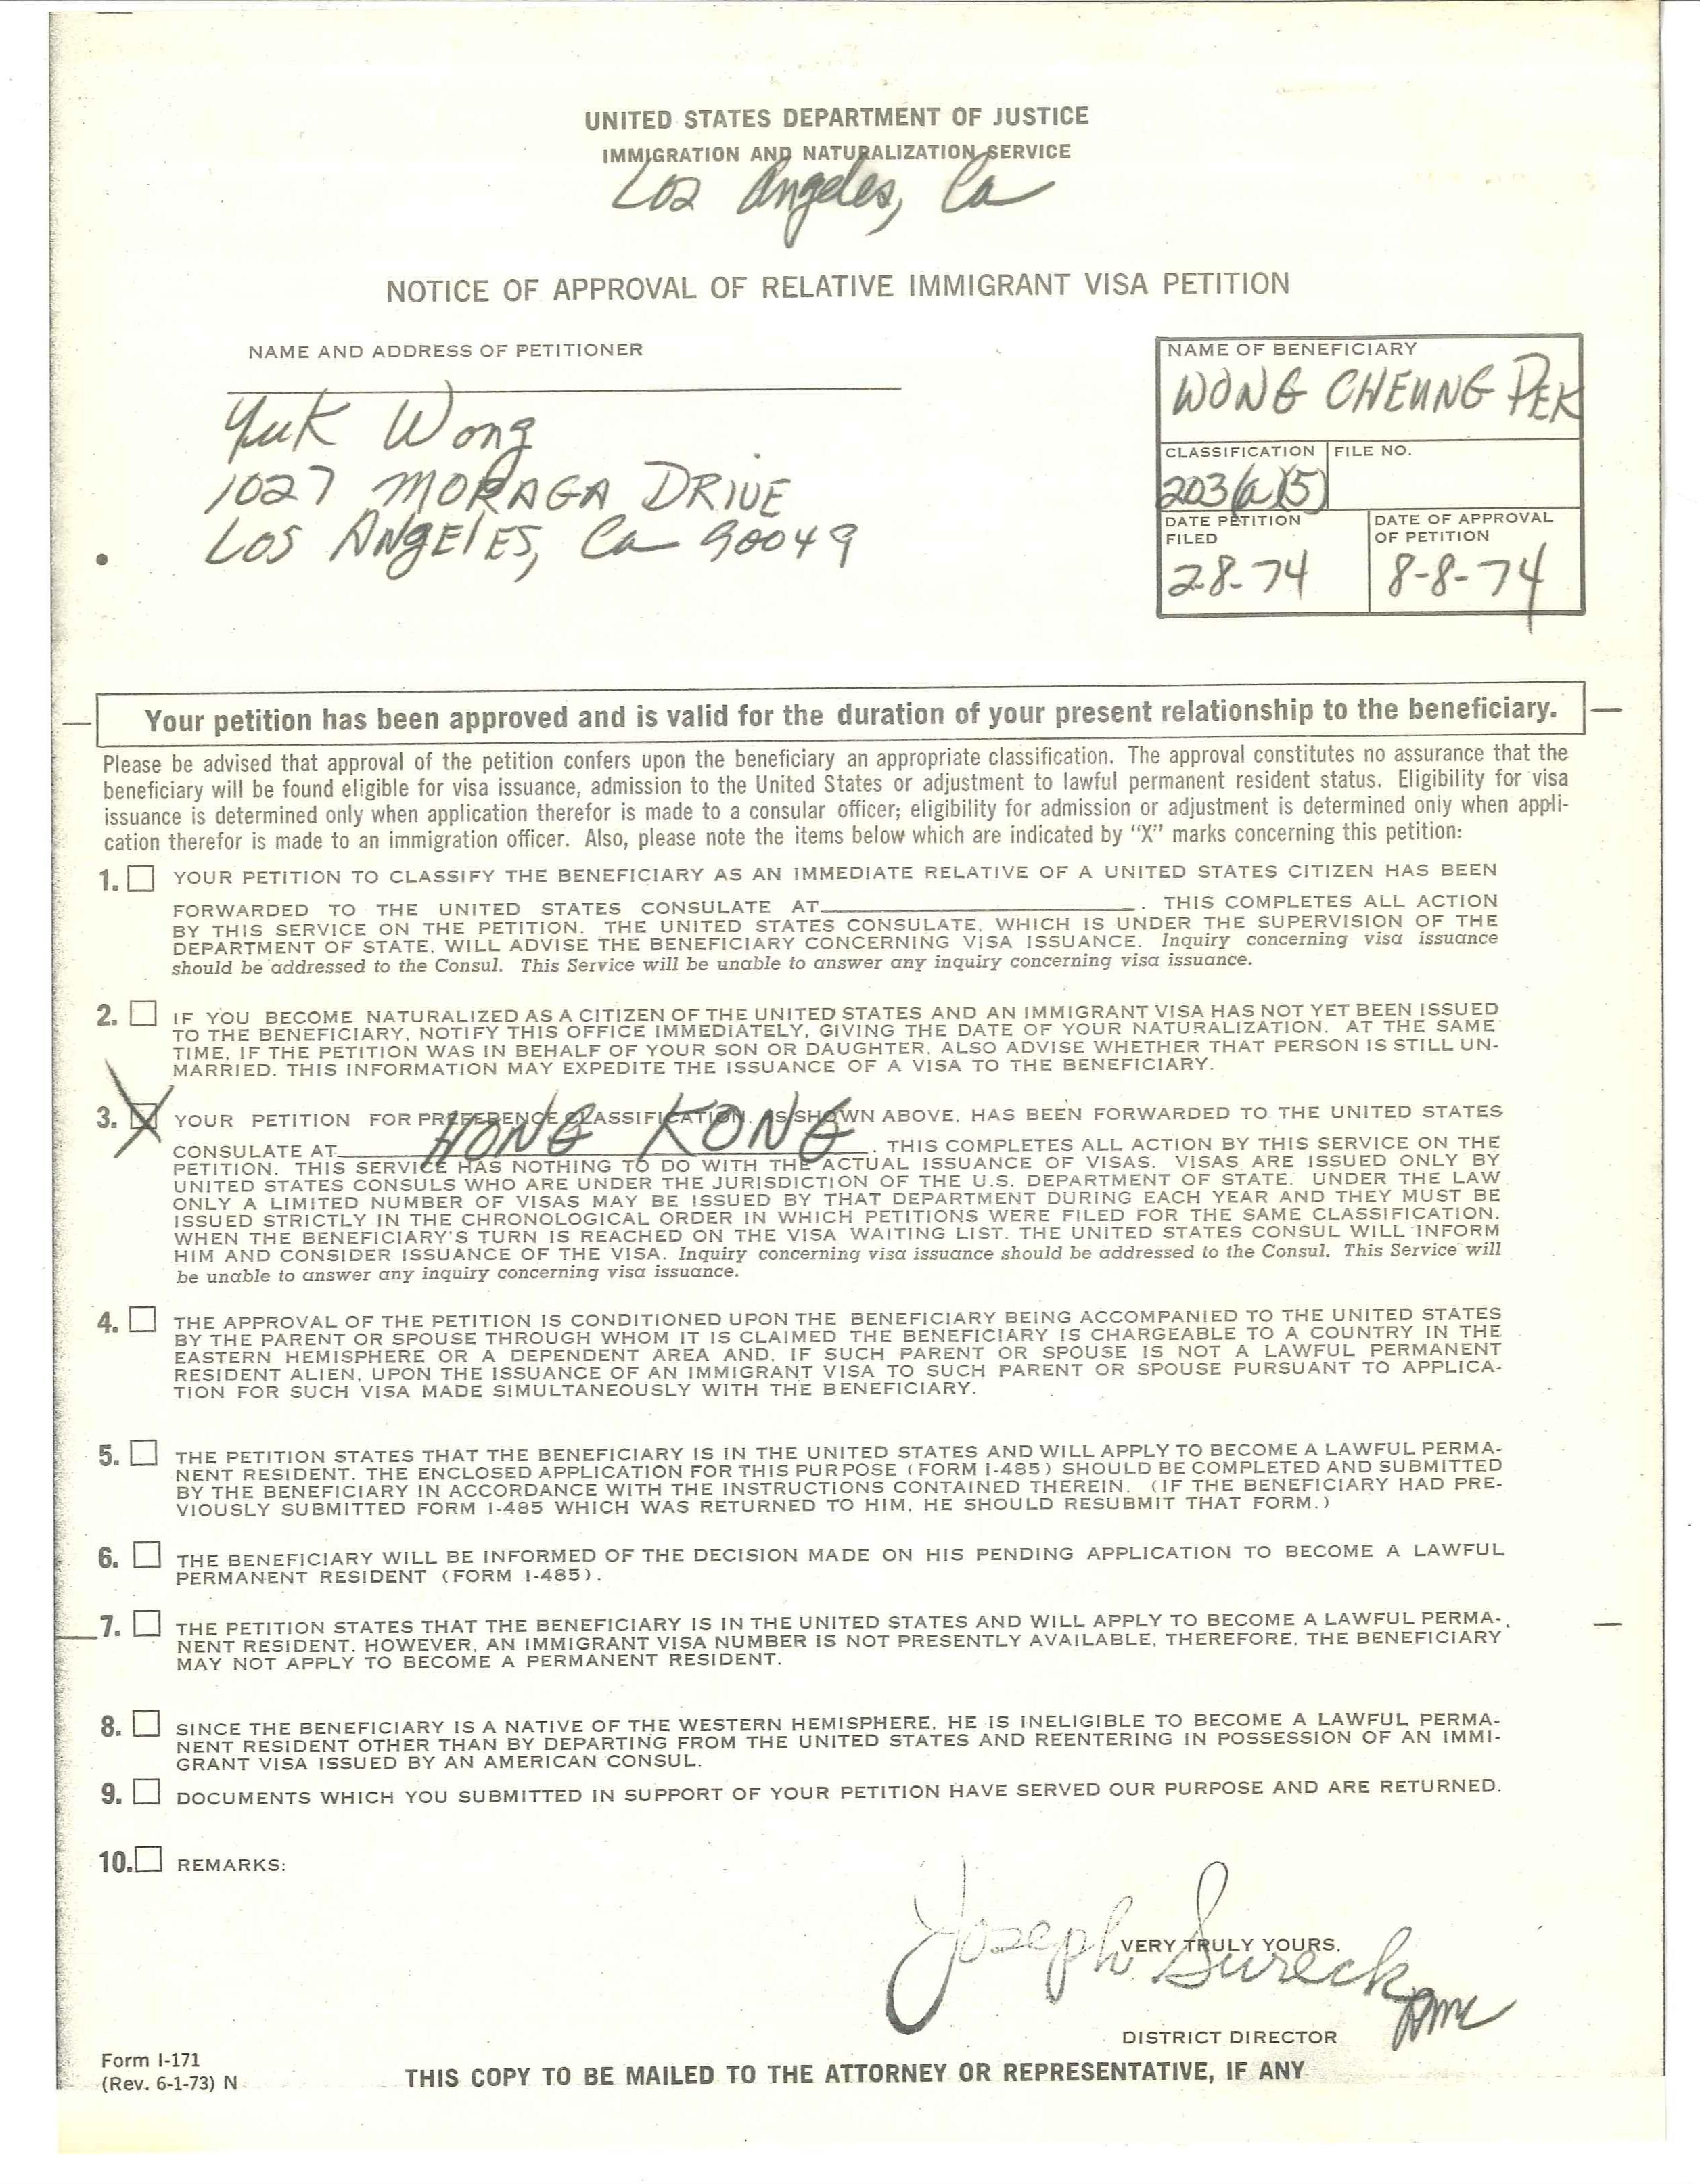 UNITED STATES DEPARTMENT OF JUSTICE
IMMIGRATION AND NATURALIZATION SERVICE
Los Angeles, Ca
NOTICE OF APPROVAL OF RELATIVE IMMIGRANT VISA PETITION
NAME AND ADDRESS OF PETITIONER
Yuk Wong
1027 MORAGA DRIVE
Los ANgElES, Ca 90049
NAME OF BENEFICIARY
WONG CHEUNG PEK
CLASSIFICATION
203(a)(5)
FILE NO.
DATE PETITION
FILED
28-74
DATE OF APPROVAL
OF PETITION
8-8-74
Your petition has been approved and is valid for the duration of your present relationship to the beneficiary.
Please be advised that approval of the petition confers upon the beneficiary an appropriate classification. The approval constitutes no assurance that the
beneficiary will be found eligible for visa issuance, admission to the United States or adjustment to lawful permanent resident status. Eligibility for visa
issuance is determined only when application therefor is made to a consular officer; eligibility for admission or adjustment is determined only when appli-
cation therefor is made to an immigration officer. Also, please note the items below which are indicated by "X" marks concerning this petition:
1. YOUR PETITION TO CLASSIFY THE BENEFICIARY AS AN IMMEDIATE RELATIVE OF A UNITED STATES CITIZEN HAS BEEN
FORWARDED TO THE UNITED STATES CONSULATE AT . THIS COMPLETES ALL ACTION
BY THIS SERVICE ON THE PETITION. THE UNITED STATES CONSULATE, WHICH IS UNDER THE SUPERVISION OF THE
DEPARTMENT OF STATE, WILL ADVISE THE BENEFICIARY CONCERNING VISA ISSUANCE. Inquiry concerning visa issuance
should be addressed to the Consul. This Service will be unable to answer any inquiry concerning visa issuance.
2. IF YOU BECOME NATURALIZED AS A CITIZEN OF THE UNITED STATES AND AN IMMIGRANT VISA HAS NOT YET BEEN ISSUED
TO THE BENEFICIARY, NOTIFY THIS OFFICE IMMEDIATELY, GIVING THE DATE OF YOUR NATURALIZATION. AT THE SAME
TIME, IF THE PETITION WAS IN BEHALF OF YOUR SON OR DAUGHTER, ALSO ADVISE WHETHER THAT PERSON IS STILL UN-
MARRIED. THIS INFORMATION MAY EXPEDITE THE ISSUANCE OF A VISA TO THE BENEFICIARY.
3. X YOUR PETITION FOR PREFERENCE CLASSIFICATION, AS SHOWN ABOVE, HAS BEEN FORWARDED TO THE UNITED STATES
CONSULATE AT HONG KONG . THIS COMPLETES ALL ACTION BY THIS SERVICE ON THE
PETITION. THIS SERVICE HAS NOTHING TO DO WITH THE ACTUAL ISSUANCE OF VISAS. VISAS ARE ISSUED ONLY BY
UNITED STATES CONSULS WHO ARE UNDER THE JURISDICTION OF THE U.S. DEPARTMENT OF STATE. UNDER THE LAW
ONLY A LIMITED NUMBER OF VISAS MAY BE ISSUED BY THAT DEPARTMENT DURING EACH YEAR AND THEY MUST BE
ISSUED STRICTLY IN THE CHRONOLOGICAL ORDER IN WHICH PETITIONS WERE FILED FOR THE SAME CLASSIFICATION.
WHEN THE BENEFICIARY'S TURN IS REACHED ON THE VISA WAITING LIST. THE UNITED STATES CONSUL WILL INFORM
HIM AND CONSIDER ISSUANCE OF THE VISA. Inquiry concerning visa issuance should be addressed to the Consul. This Service will
be unable to answer any inquiry concerning visa issuance.
4. THE APPROVAL OF THE PETITION IS CONDITIONED UPON THE BENEFICIARY BEING ACCOMPANIED TO THE UNITED STATES
BY THE PARENT OR SPOUSE THROUGH WHOM IT IS CLAIMED THE BENEFICIARY IS CHARGEABLE TO A COUNTRY IN THE
EASTERN HEMISPHERE OR A DEPENDENT AREA AND, IF SUCH PARENT OR SPOUSE IS NOT A LAWFUL PERMANENT
RESIDENT ALIEN, UPON THE ISSUANCE OF AN IMMIGRANT VISA TO SUCH PARENT OR SPOUSE PURSUANT TO APPLICA-
TION FOR SUCH VISA MADE SIMULTANEOUSLY WITH THE BENEFICIARY.
5. THE PETITION STATES THAT THE BENEFICIARY IS IN THE UNITED STATES AND WILL APPLY TO BECOME A LAWFUL PERMA-
NENT RESIDENT. THE ENCLOSED APPLICATION FOR THIS PURPOSE (FORM I-485) SHOULD BE COMPLETED AND SUBMITTED
BY THE BENEFICIARY IN ACCORDANCE WITH THE INSTRUCTIONS CONTAINED THEREIN. (IF THE BENEFICIARY HAD PRE-
VIOUSLY SUBMITTED FORM I-485 WHICH WAS RETURNED TO HIM, HE SHOULD RESUBMIT THAT FORM.)
6. THE BENEFICIARY WILL BE INFORMED OF THE DECISION MADE ON HIS PENDING APPLICATION TO BECOME A LAWFUL
PERMANENT RESIDENT (FORM I-485).
7. THE PETITION STATES THAT THE BENEFICIARY IS IN THE UNITED STATES AND WILL APPLY TO BECOME A LAWFUL PERMA-
NENT RESIDENT. HOWEVER, AN IMMIGRANT VISA NUMBER IS NOT PRESENTLY AVAILABLE, THEREFORE, THE BENEFICIARY
MAY NOT APPLY TO BECOME A PERMANENT RESIDENT.
8. SINCE THE BENEFICIARY IS A NATIVE OF THE WESTERN HEMISPHERE, HE IS INELIGIBLE TO BECOME A LAWFUL PERMA-
NENT RESIDENT OTHER THAN BY DEPARTING FROM THE UNITED STATES AND REENTERING IN POSSESSION OF AN IMMI-
GRANT VISA ISSUED BY AN AMERICAN CONSUL.
9. DOCUMENTS WHICH YOU SUBMITTED IN SUPPORT OF YOUR PETITION HAVE SERVED OUR PURPOSE AND ARE RETURNED.
10. REMARKS:
VERY TRULY YOURS,
Joseph Sureck
DISTRICT DIRECTOR
Form I-171
(Rev. 6-1-73) N
THIS COPY TO BE MAILED TO THE ATTORNEY OR REPRESENTATIVE, IF ANY